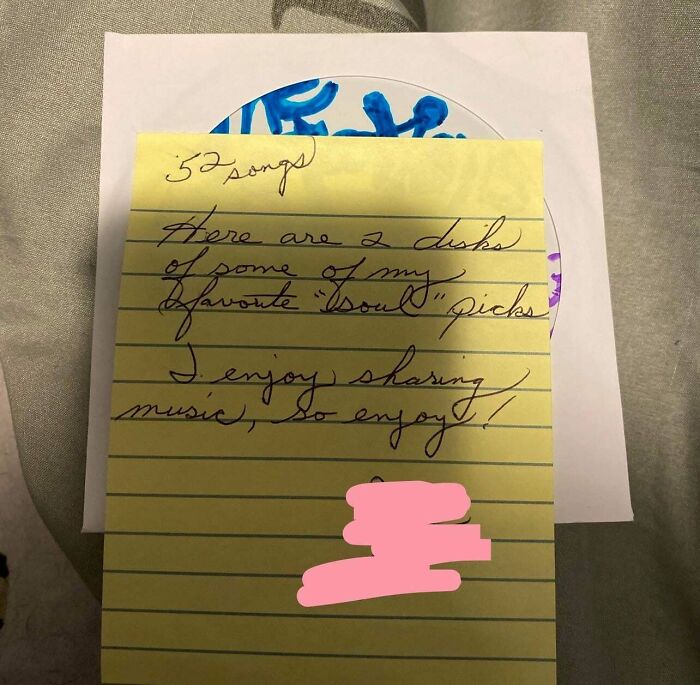 52 songs
Here are 2 disks
of some of my
favorite "soul" picks
I enjoy sharing
music, so enjoy!